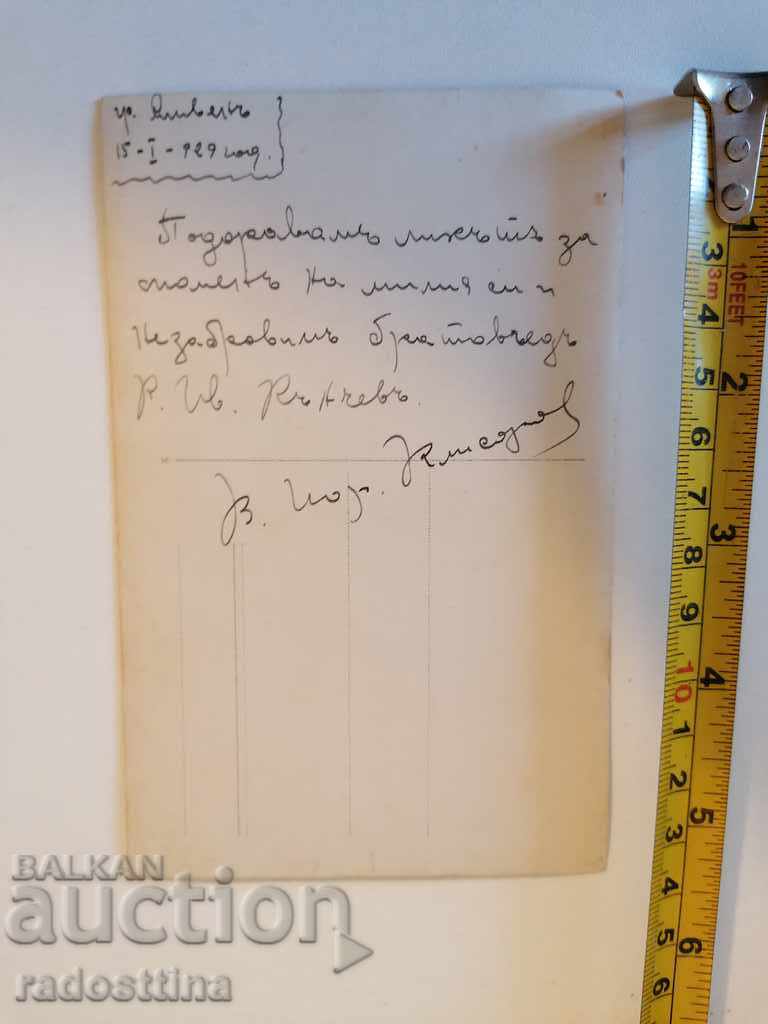 гр. Сливенъ
15-I-929 год.
Подарявамъ ликътъ за
споменъ на милия си и
незабравимъ братовчедъ
К. Ив. Кънчевъ.
В. Йор.
BALKAN
auction
radosttina
10FEET
3m
1
2
3
4
5
6
3
4
5
6
7
8
9
10
1
2
3
4
5
6